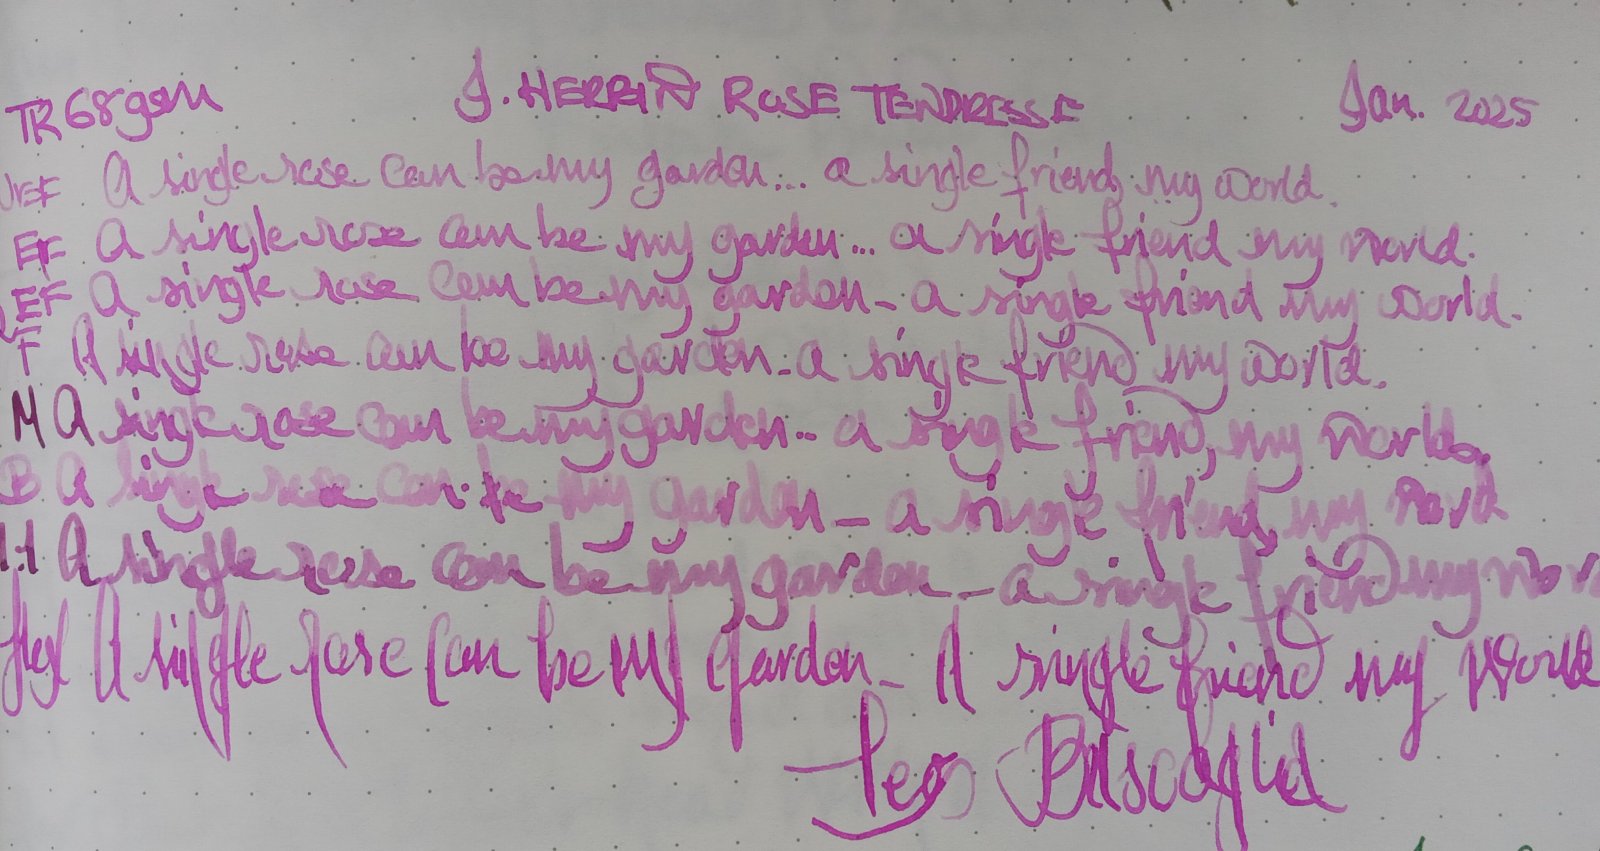 TR 68gsm J. HERBIN ROSE TENDRESSE Jan. 2025
A single rose can be my garden... a single friend, my world.
EF A single rose can be my garden... a single friend my world.
EF A single rose can be my garden - a single friend my world.
F A single rose can be my garden - a single friend my world.
M A single rose can be my garden.. a single friend, my world.
B A single rose can be my garden - a single friend, my world
1.1 A single rose can be my garden - a single friend my wor
flex A single rose can be my garden - A single friend my world
Leo Buscaglia